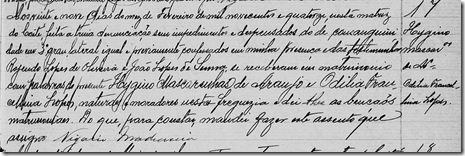 Aos vinte e nove dias do mez de Fevereiro de mil novecentos e quatorze nesta matriz
de Caeté feita a trina denunciação sem impedimentos e dispensados do de consanguini-
dade em 3º grau lateral igual e previamente confessados em minha presença e das testemunhas
Rozendo Lopes de Oliveira e João Lopes de Senna, se receberam em matrimonio
com palavras de presente Hygino Mascarenhas de Araujo e Odilia Fran-
celina Lopes, naturaes e moradores nesta freguezia e dei-lhes as bençãos
matrimoniaes. Do que, para constar, mandei fazer este assento que
assigno
17
Hygino
Mascarª
de Arº
e
Odilia Francel-
lina Lopes.
18